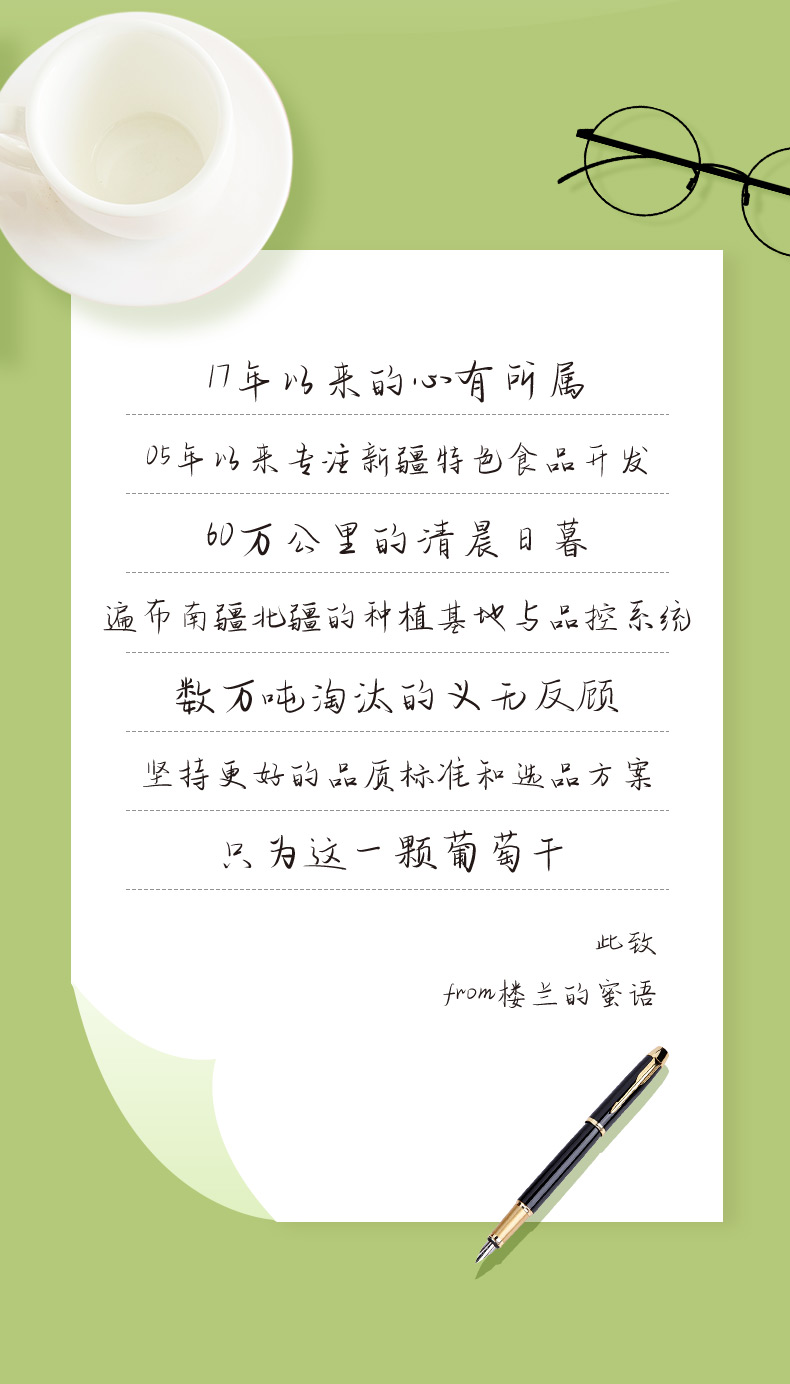 17年以来的心有所属
05年以来专注新疆特色食品开发
60万公里的清晨日暮
遍布南疆北疆的种植基地与品控系统
数万吨淘汰的义无反顾
坚持更好的品质标准和选品方案
只为这一颗葡萄干
此致
from楼兰的蜜语